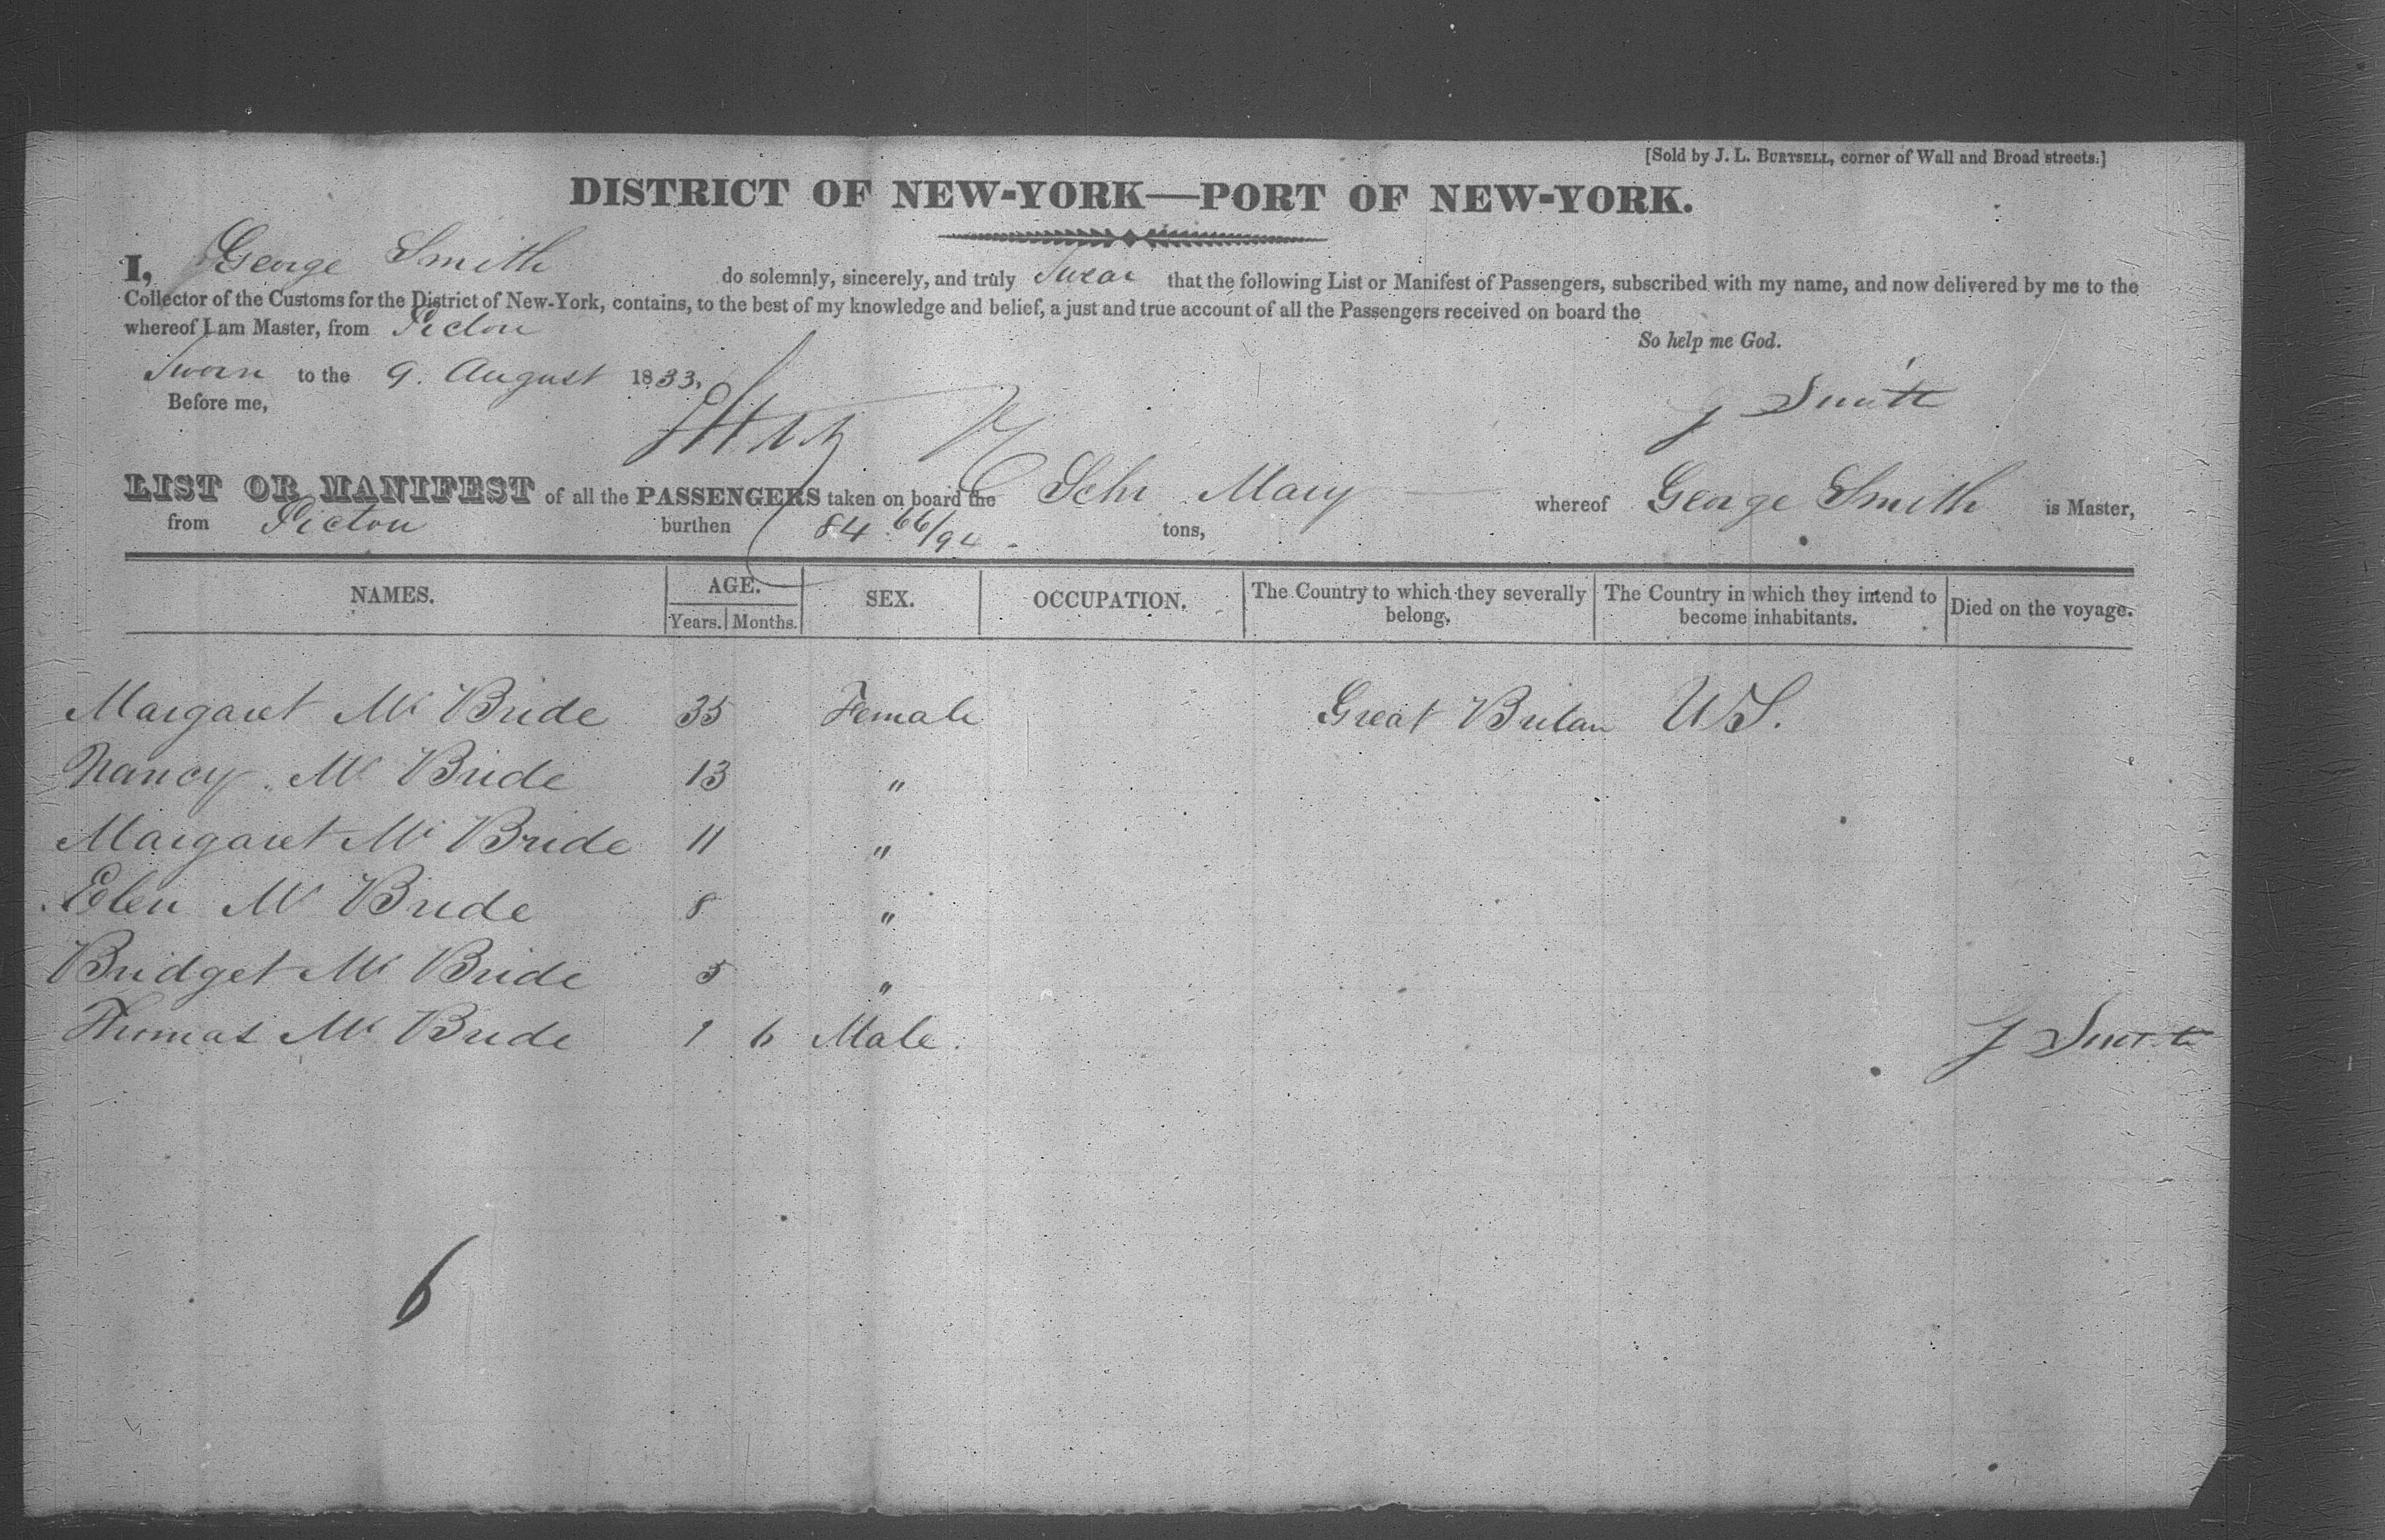 [Sold by J. L. BURTSELL, corner of Wall and Broad streets.]
DISTRICT OF NEW-YORK—PORT OF NEW-YORK.
I, George Smith do solemnly, sincerely, and truly Swear that the following List or Manifest of Passengers, subscribed with my name, and now delivered by me to the
Collector of the Customs for the District of New-York, contains, to the best of my knowledge and belief, a just and true account of all the Passengers received on board the
whereof I am Master, from Picton
So help me God.
Sworn to the 9. August 1833.
Before me,
J Smith
LIST OR MANIFEST of all the PASSENGERS taken on board the Schr Mary whereof George Smith is Master,
from Picton burthen 84 66/94 tons,
NAMES. AGE. SEX. OCCUPATION. The Country to which they severally belong. The Country in which they intend to become inhabitants. Died on the voyage.
Years. Months.
Margaret Mc Bride 35 Female Great Britain US.
Nancy Mc Bride 13 "
Margaret Mc Bride 11 "
Elen Mc Bride 8 "
Bridget Mc Bride 5 "
Thomas Mc Bride 1 6 Male.
J Smith
6